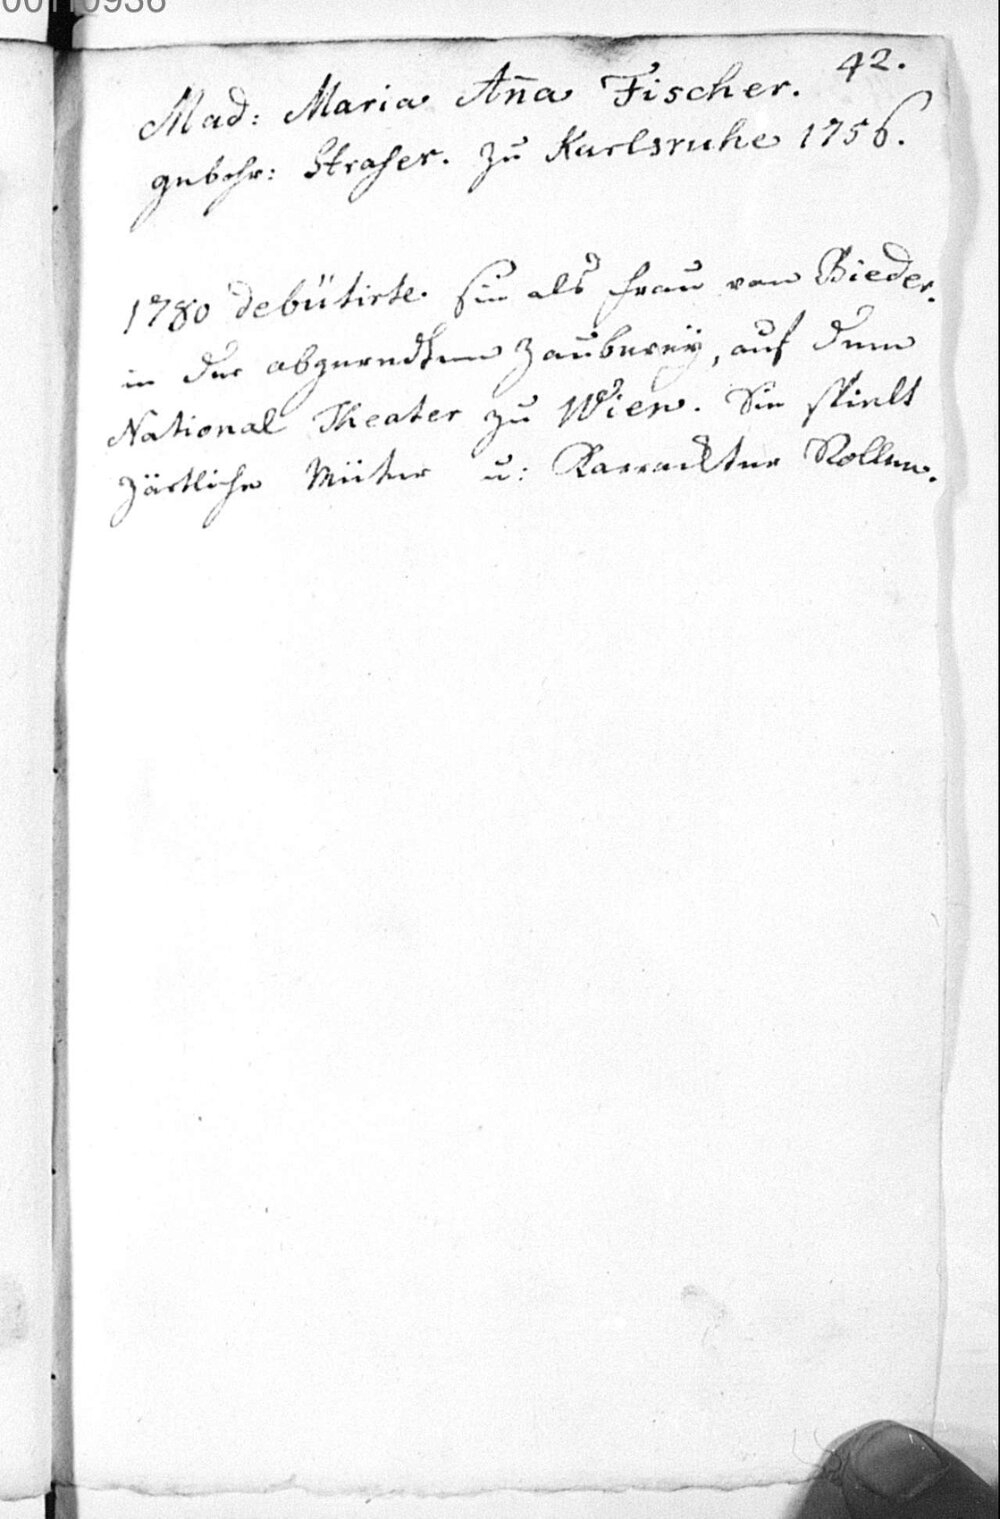 00110938
42.
Mad: Maria An̄a Fischer.
gebohr: Straßer. zu Karlsruhe 1756.
1780 debütirte sie als Frau von Bieder.
in der abgeredten Zauberey, auf dem
National Theater zu Wien. Sie spielt
zärtliche Mütter u: Karackter Rollen.